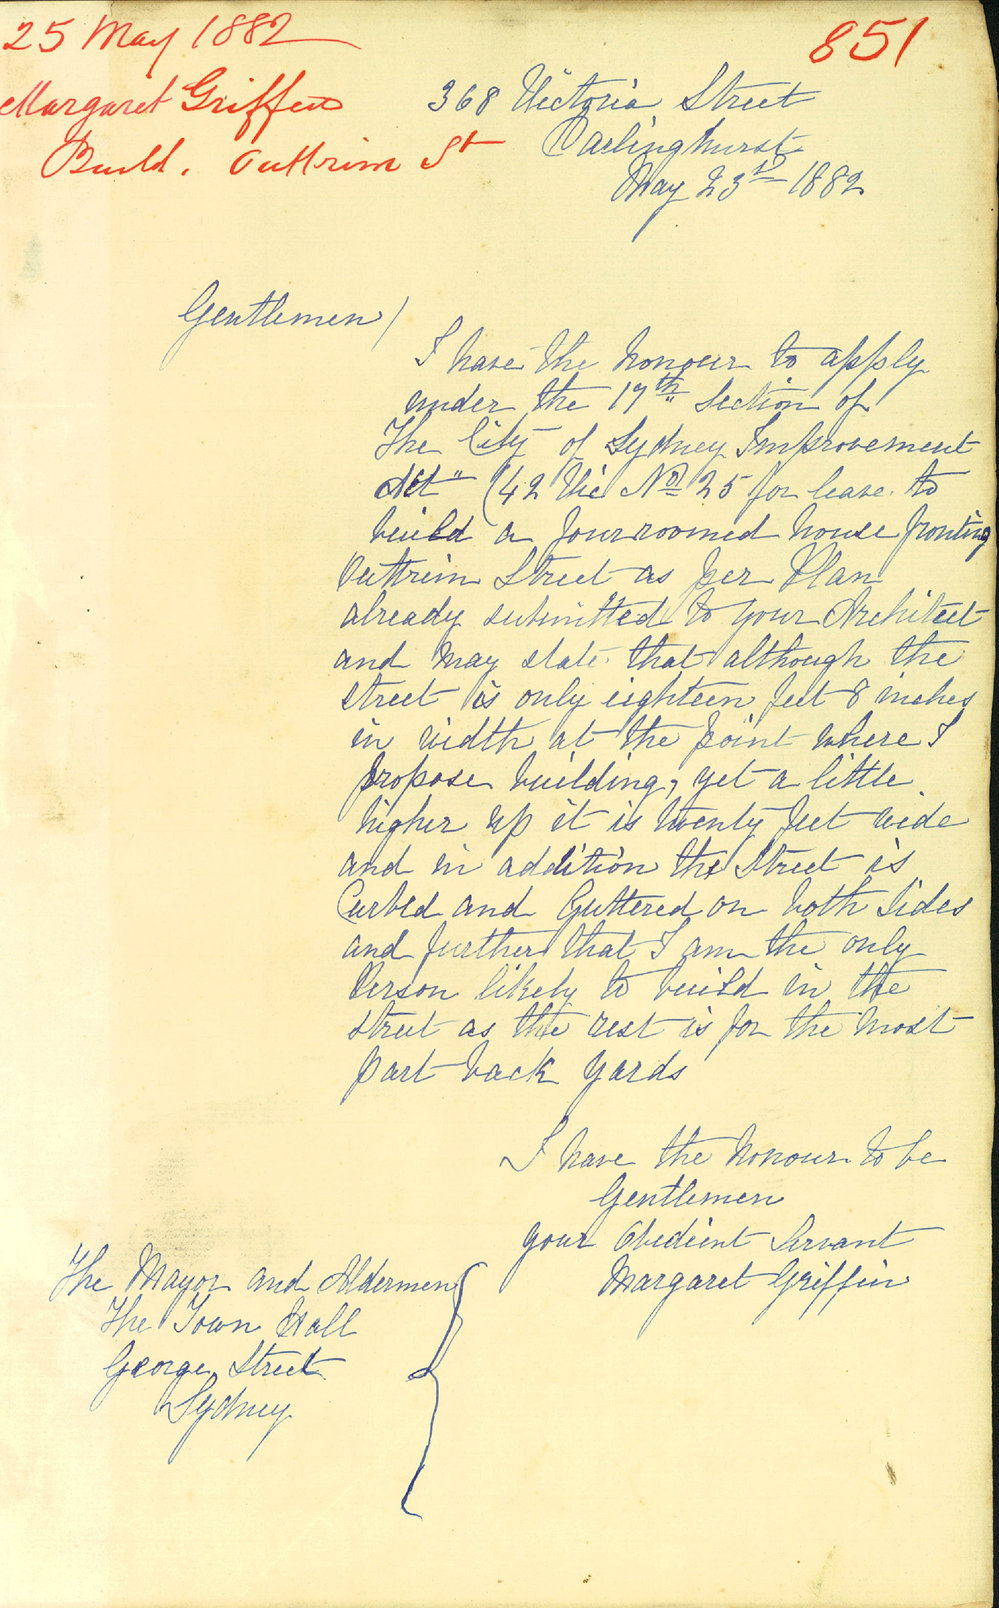 25 May 1882
851
Margaret Griffin
Build. Outtrim St
368 Victoria Street
Darlinghurst
May 23rd 1882
Gentlemen/
I have the honour to apply
under the 17th Section of
The City of Sydney Improvement
Act" (42 Vic No 25 for leave to
build a four roomed house fronting
Outtrim Street as per Plan
already submitted to your Architect
and may state that although the
street is only eighteen feet 8 inches
in width at the point where I
propose building, yet a little
higher up it is twenty feet wide
and in addition the Street is
Curbed and Guttered on both sides
and further that I am the only
Person likely to build in the
street as the rest is for the most
part back yards
I have the honour to be
Gentlemen
your Obedient Servant
Margaret Griffin
The Mayor and Aldermen
The Town Hall
George Street
Sydney